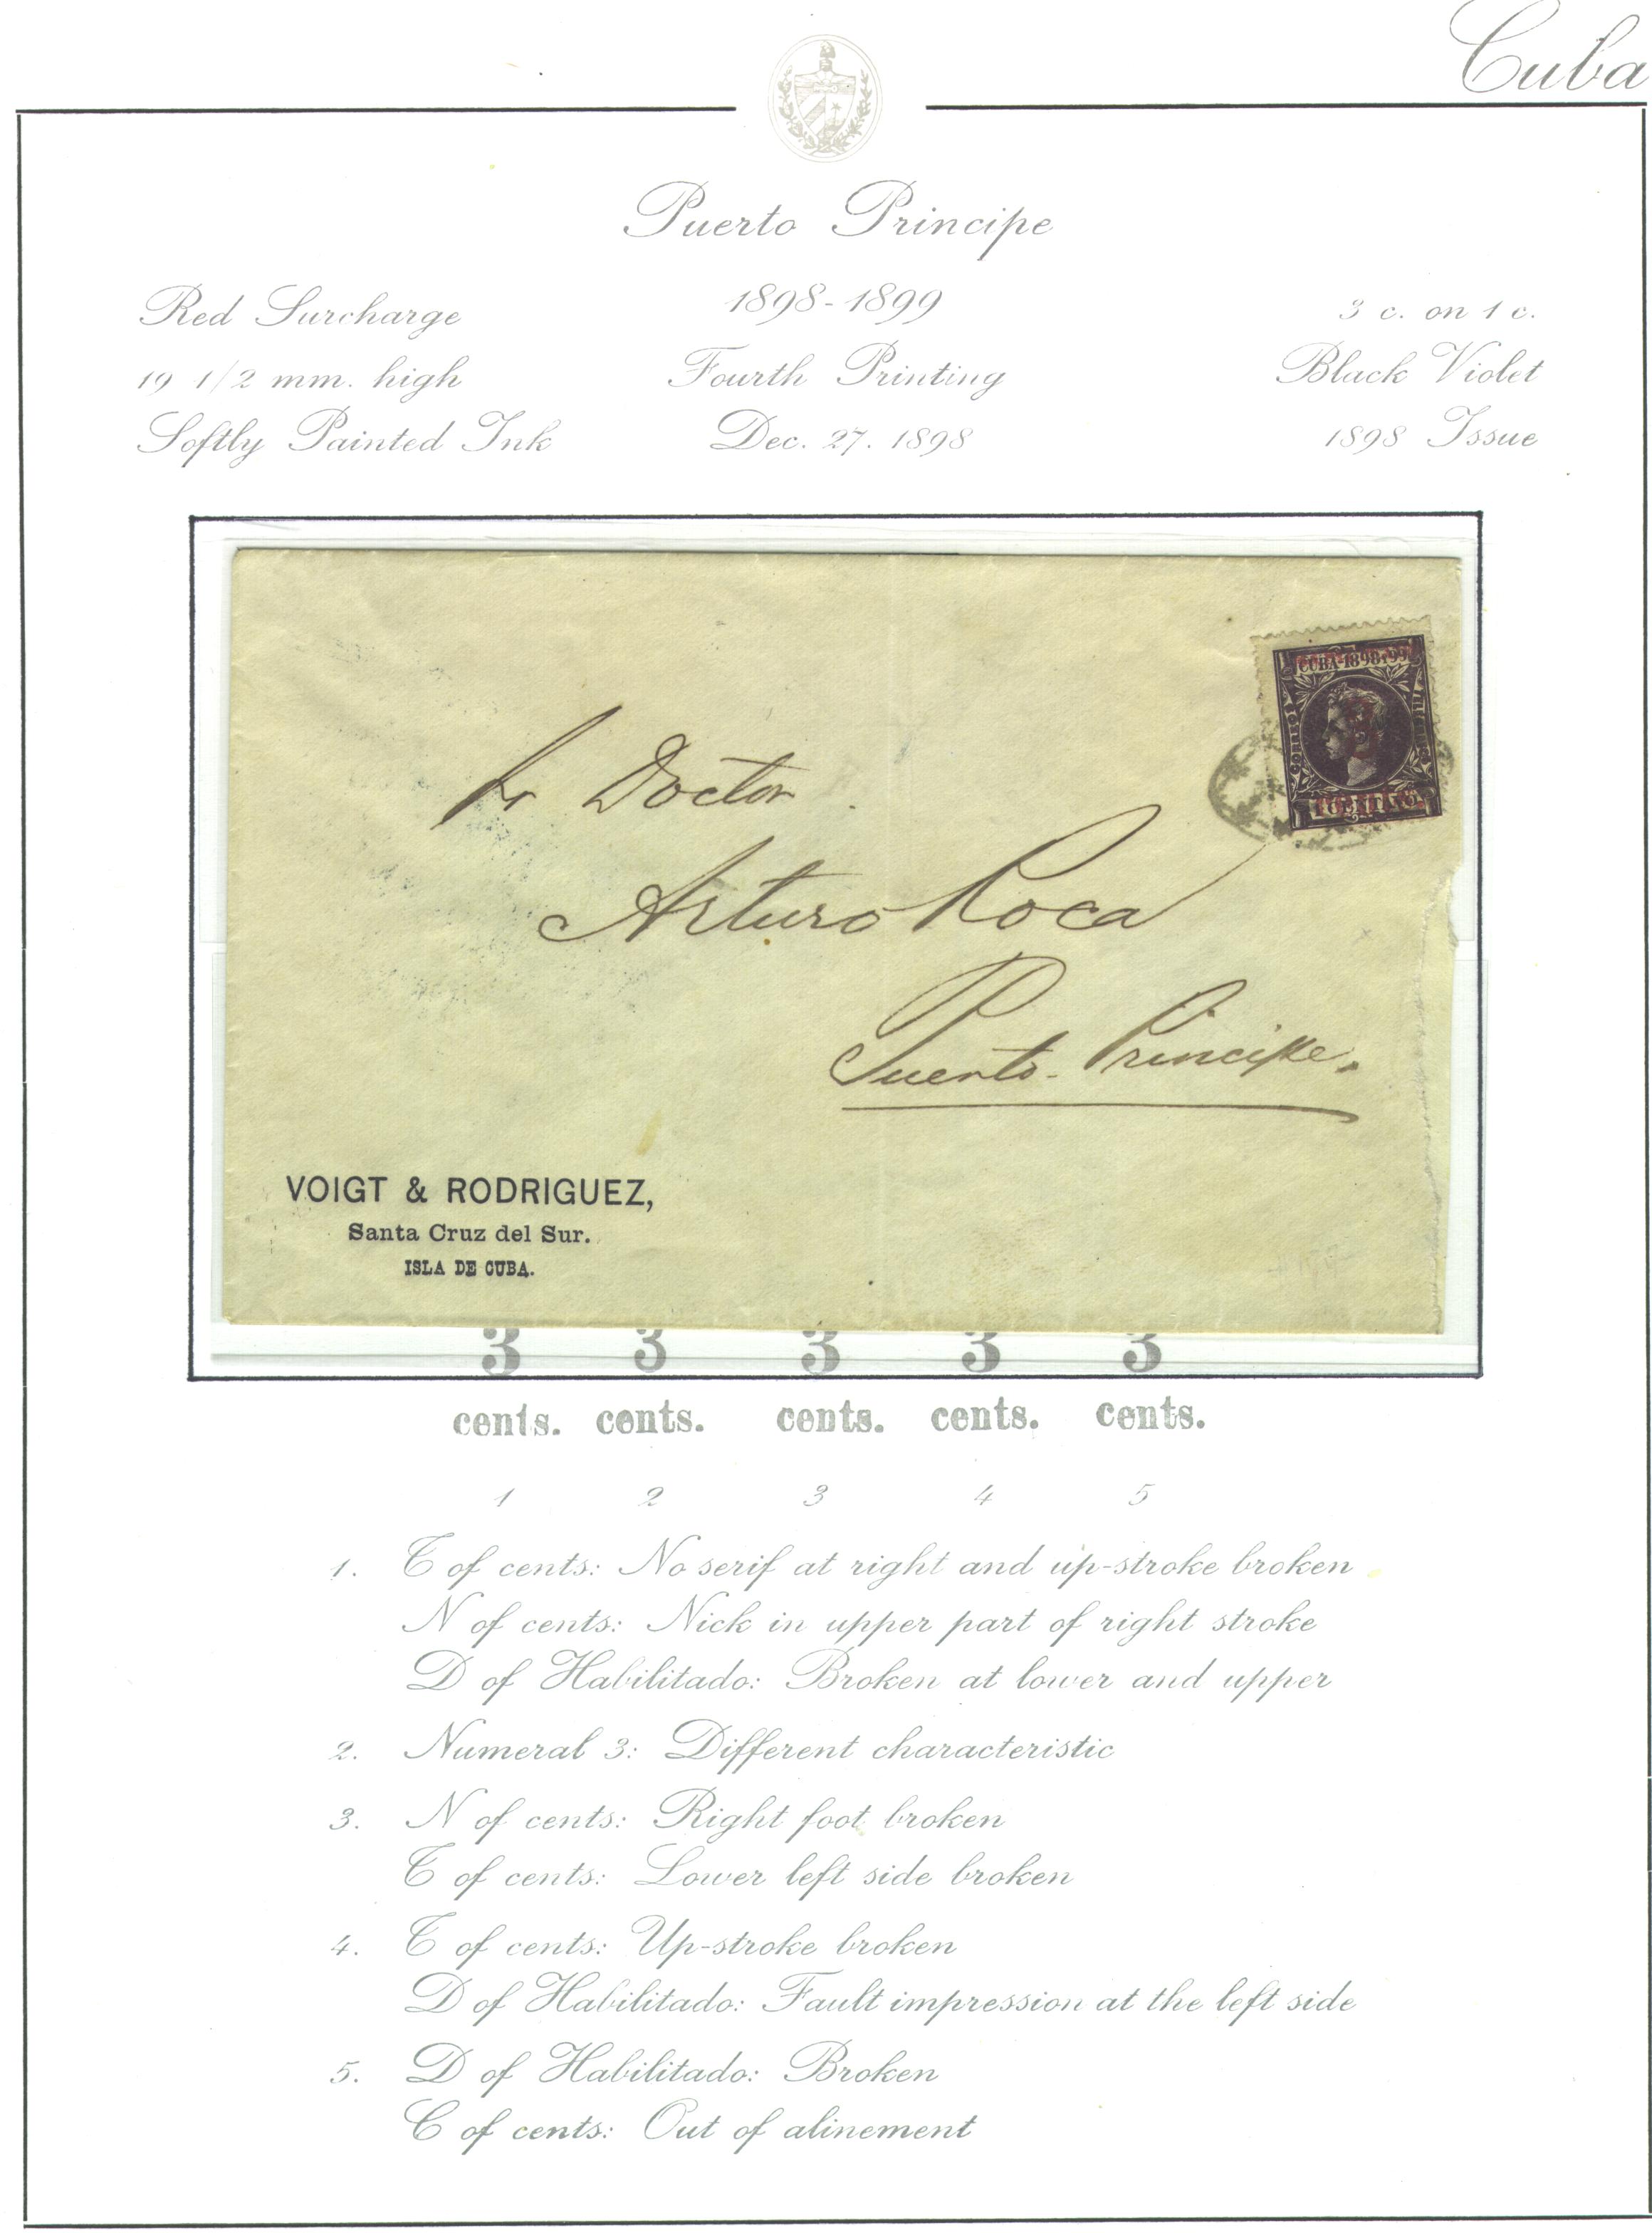 Cuba
Puerto Principe
Red Surcharge
1898-1899
3 c. on 1 c.
19 1/2 mm. high
Fourth Printing
Black Violet
Softly Painted Ink
Dec. 27. 1898
1898 Issue
CUBA 1898 Y 99
Sr Doctor
Arturo Roca
Puerto-Principe.
VOIGT & RODRIGUEZ,
Santa Cruz del Sur.
ISLA DE CUBA.
3 3 3 3 3
cents. cents. cents. cents. cents.
1 2 3 4 5
1. T of cents: No serif at right and up-stroke broken
N of cents: Nick in upper part of right stroke
D of Habilitado: Broken at lower and upper
2. Numeral 3: Different characteristic
3. N of cents: Right foot broken
T of cents: Lower left side broken
4. T of cents: Up-stroke broken
D of Habilitado: Fault impression at the left side
5. D of Habilitado: Broken
C of cents: Out of alinement